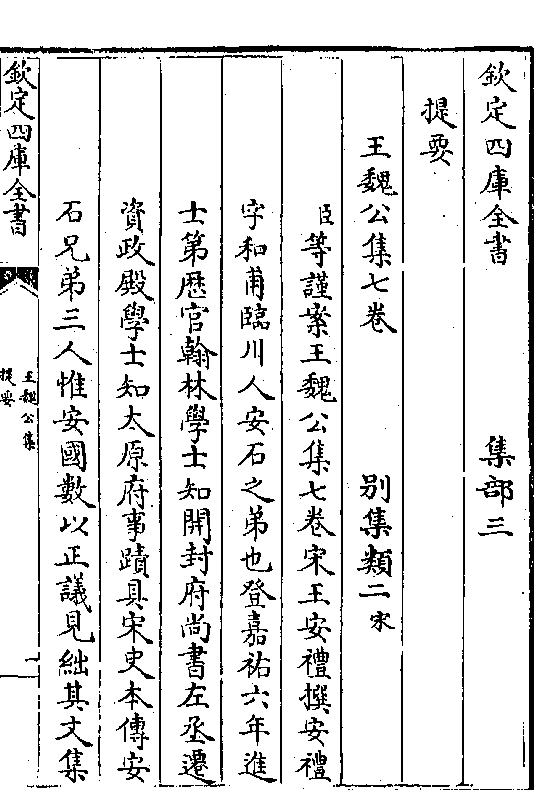 欽定四庫全書　集部三
提要
王魏公集七卷　別集類二宋
臣等謹案王魏公集七卷宋王安禮撰安禮
字和甫臨川人安石之弟也登嘉祐六年進
士第歷官翰林學士知開封府尚書左丞遷
資政殿學士知太原府事蹟具宋史本傳安
石兄弟三人惟安國數以正議見絀其文集
欽定四庫全書
王魏公集
提要
一